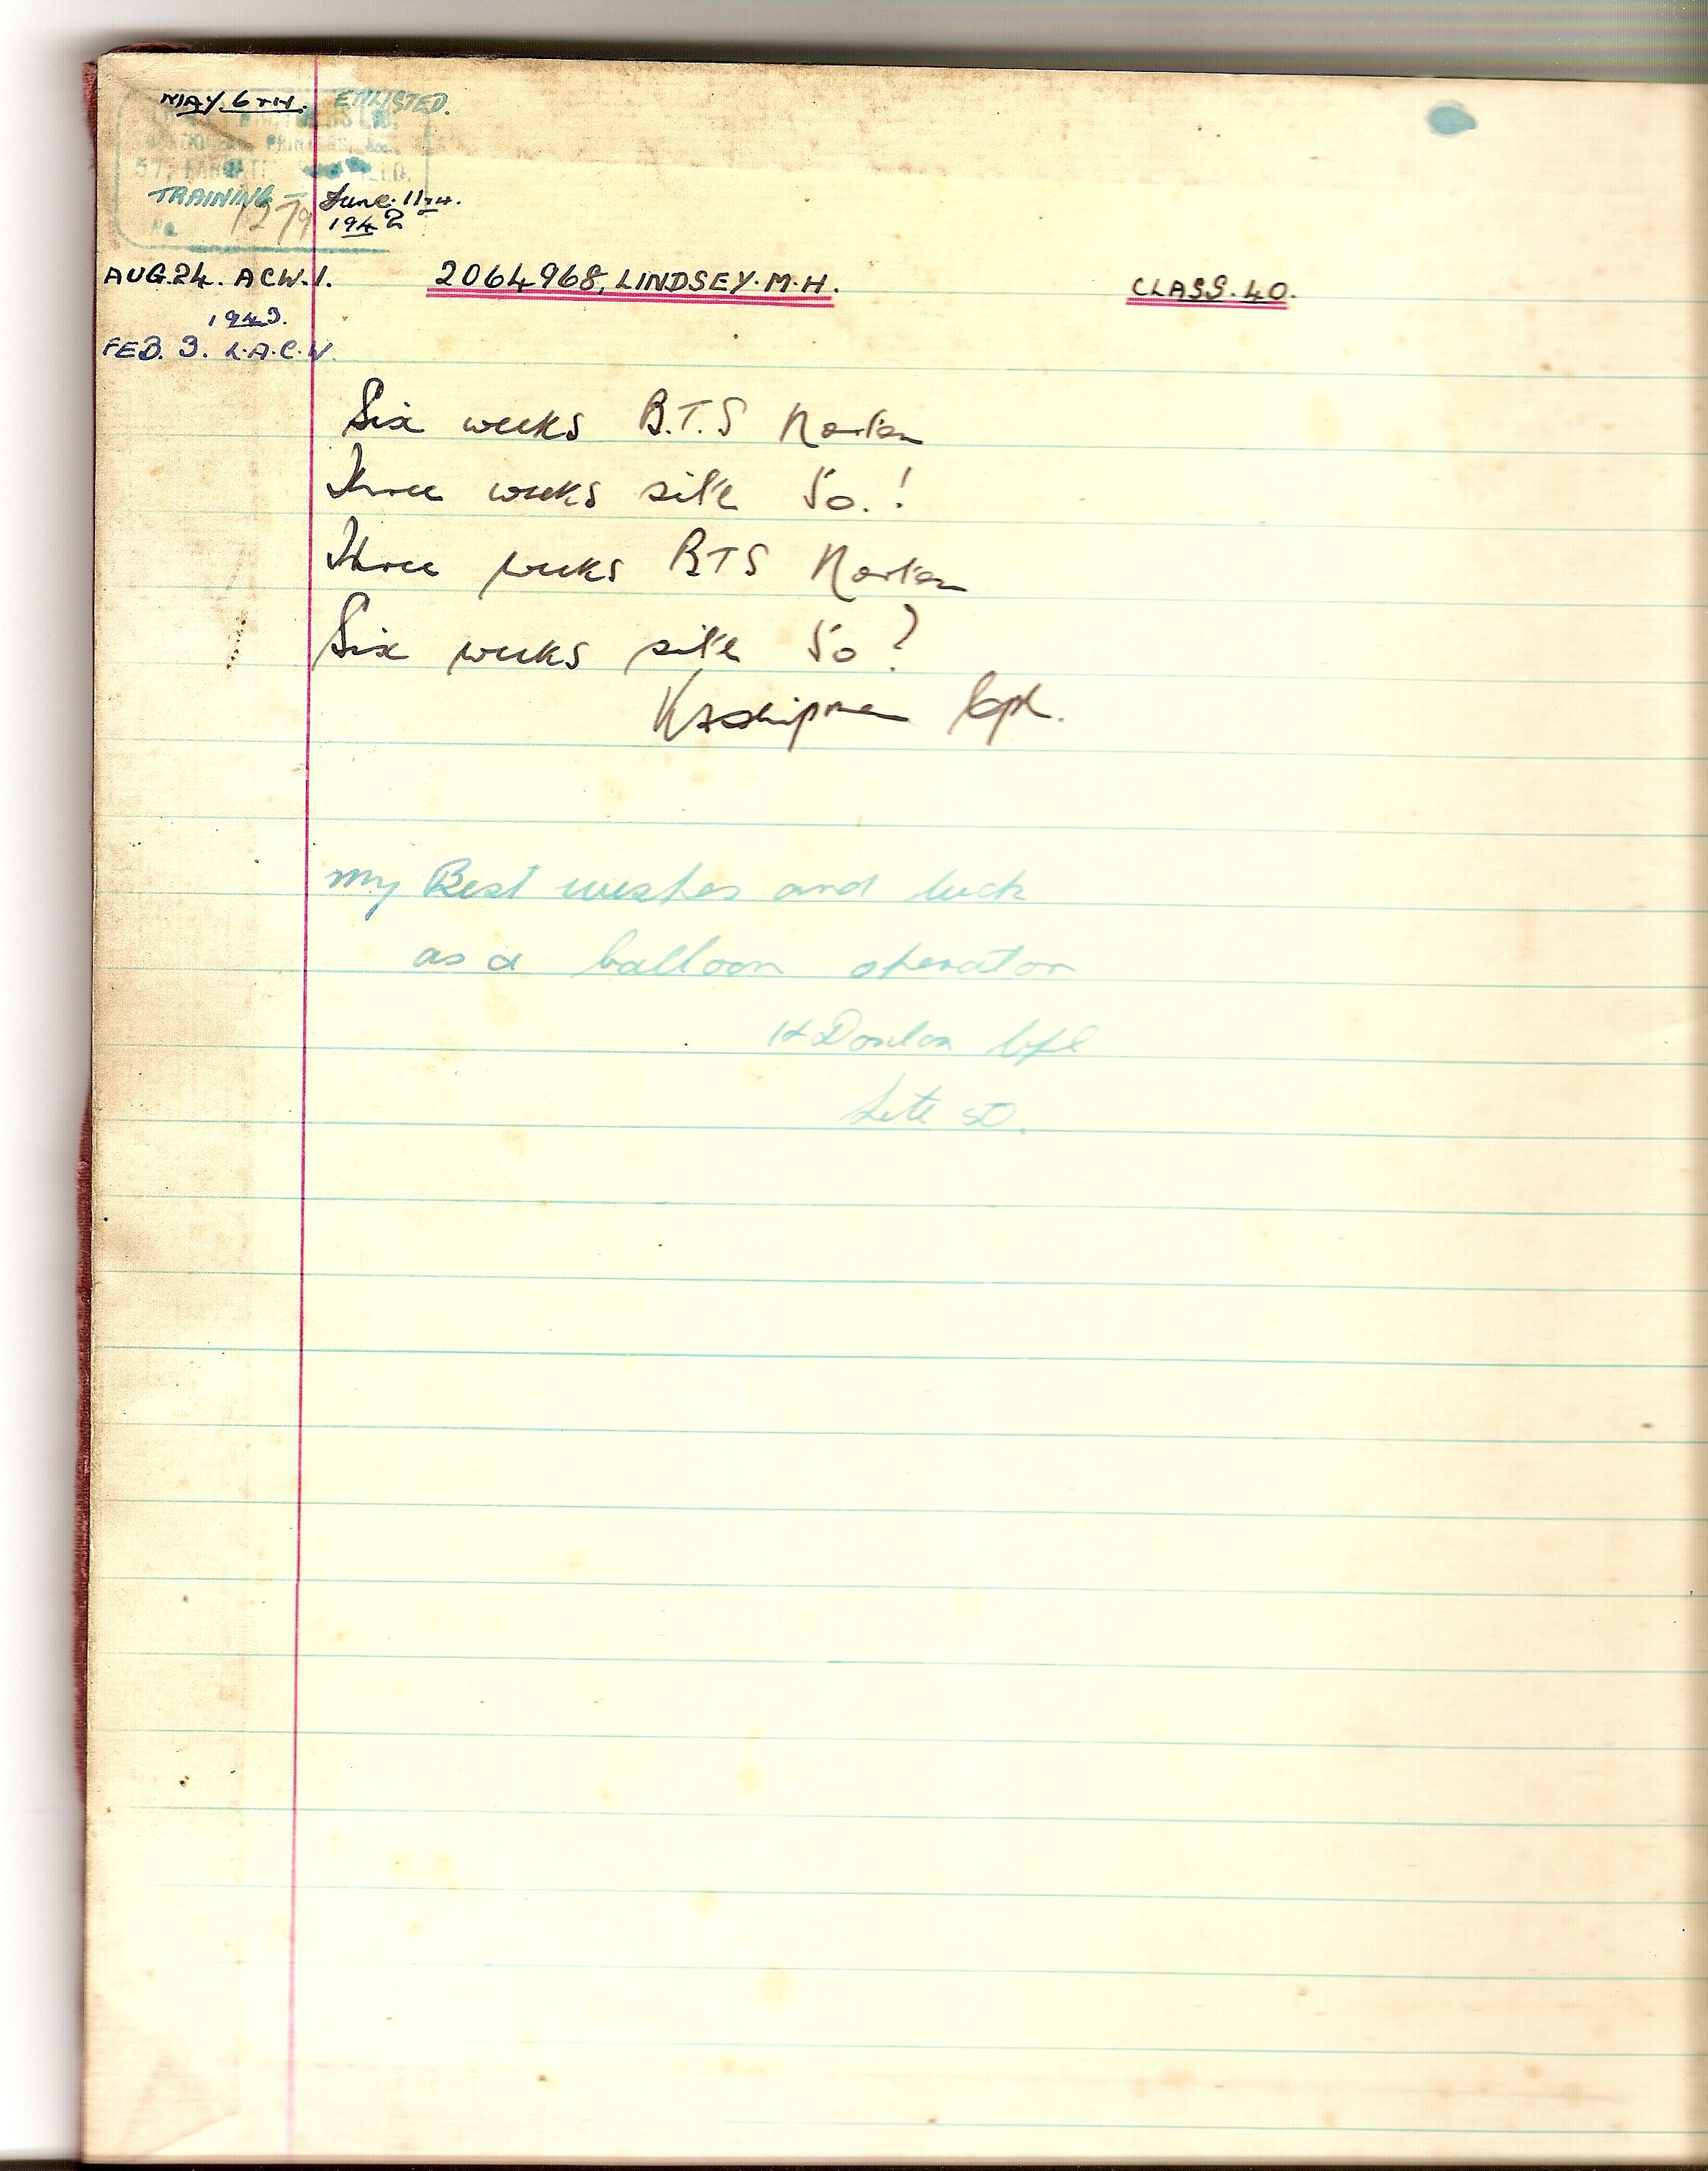 MAY. 6TH. ENLISTED.
PRINTERS, &c.,
57,
TRAINING – June. 11TH.
No. 1279 1942
AUG.24. A C W.1. 2064968, LINDSEY. M. H. CLASS. 40.
1943.
FEB. 3. L.A.C.W.
Six weeks B.T.S Norton
Three weeks site 50.!
Three weeks BTS Norton
Six weeks site 50?
Cpl.
My Best wishes and luck
as a balloon operator
H Donlon Cpl
Site 50.